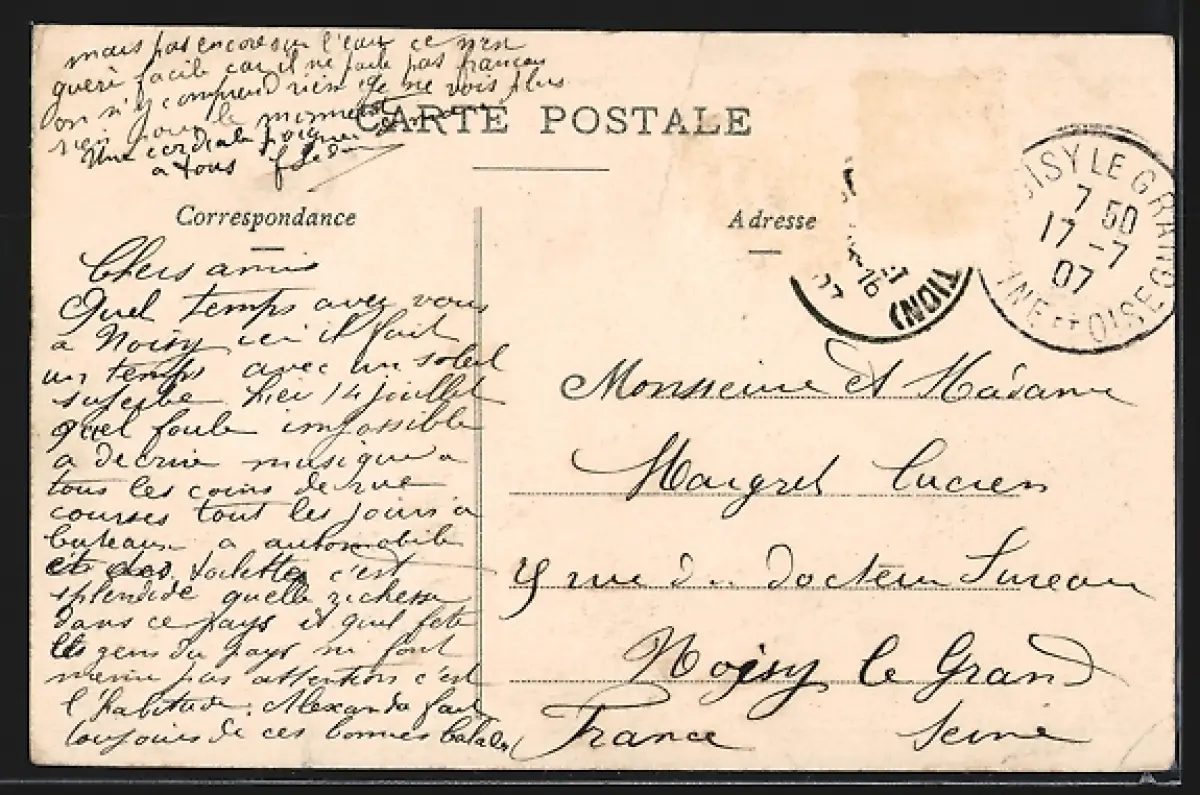 mais pas encore sur l'eau ce n'est
guère facile car il ne parle pas français
on n'y comprend rien je ne vois plus
rien pour le moment
Une cordiale poignée de main
a tous
CARTE POSTALE
Correspondance
Adresse
Chers amis
Quel temps avez vous
a Noisy ici il fait
un temps avec un soleil
superbe hier 14 juillet
quel foule impossible
a decrire musique a
tous les coins de rue
courses tout les jours a
bateaux a automobile
et des toilettes c'est
splendide quelle richesse
dans ce pays et quel fete
les gens du pays ni font
meme pas attention c'est
l'habitude. Alexandre fait
toujours de ces bonnes balades
NOISY LE GRAND
7 50
17 -7
07
SEINE ET OISE
TION)
Monsieur et Madame
Maigret Lucien
rue du docteur Sureau
Noisy le Grand
France Seine